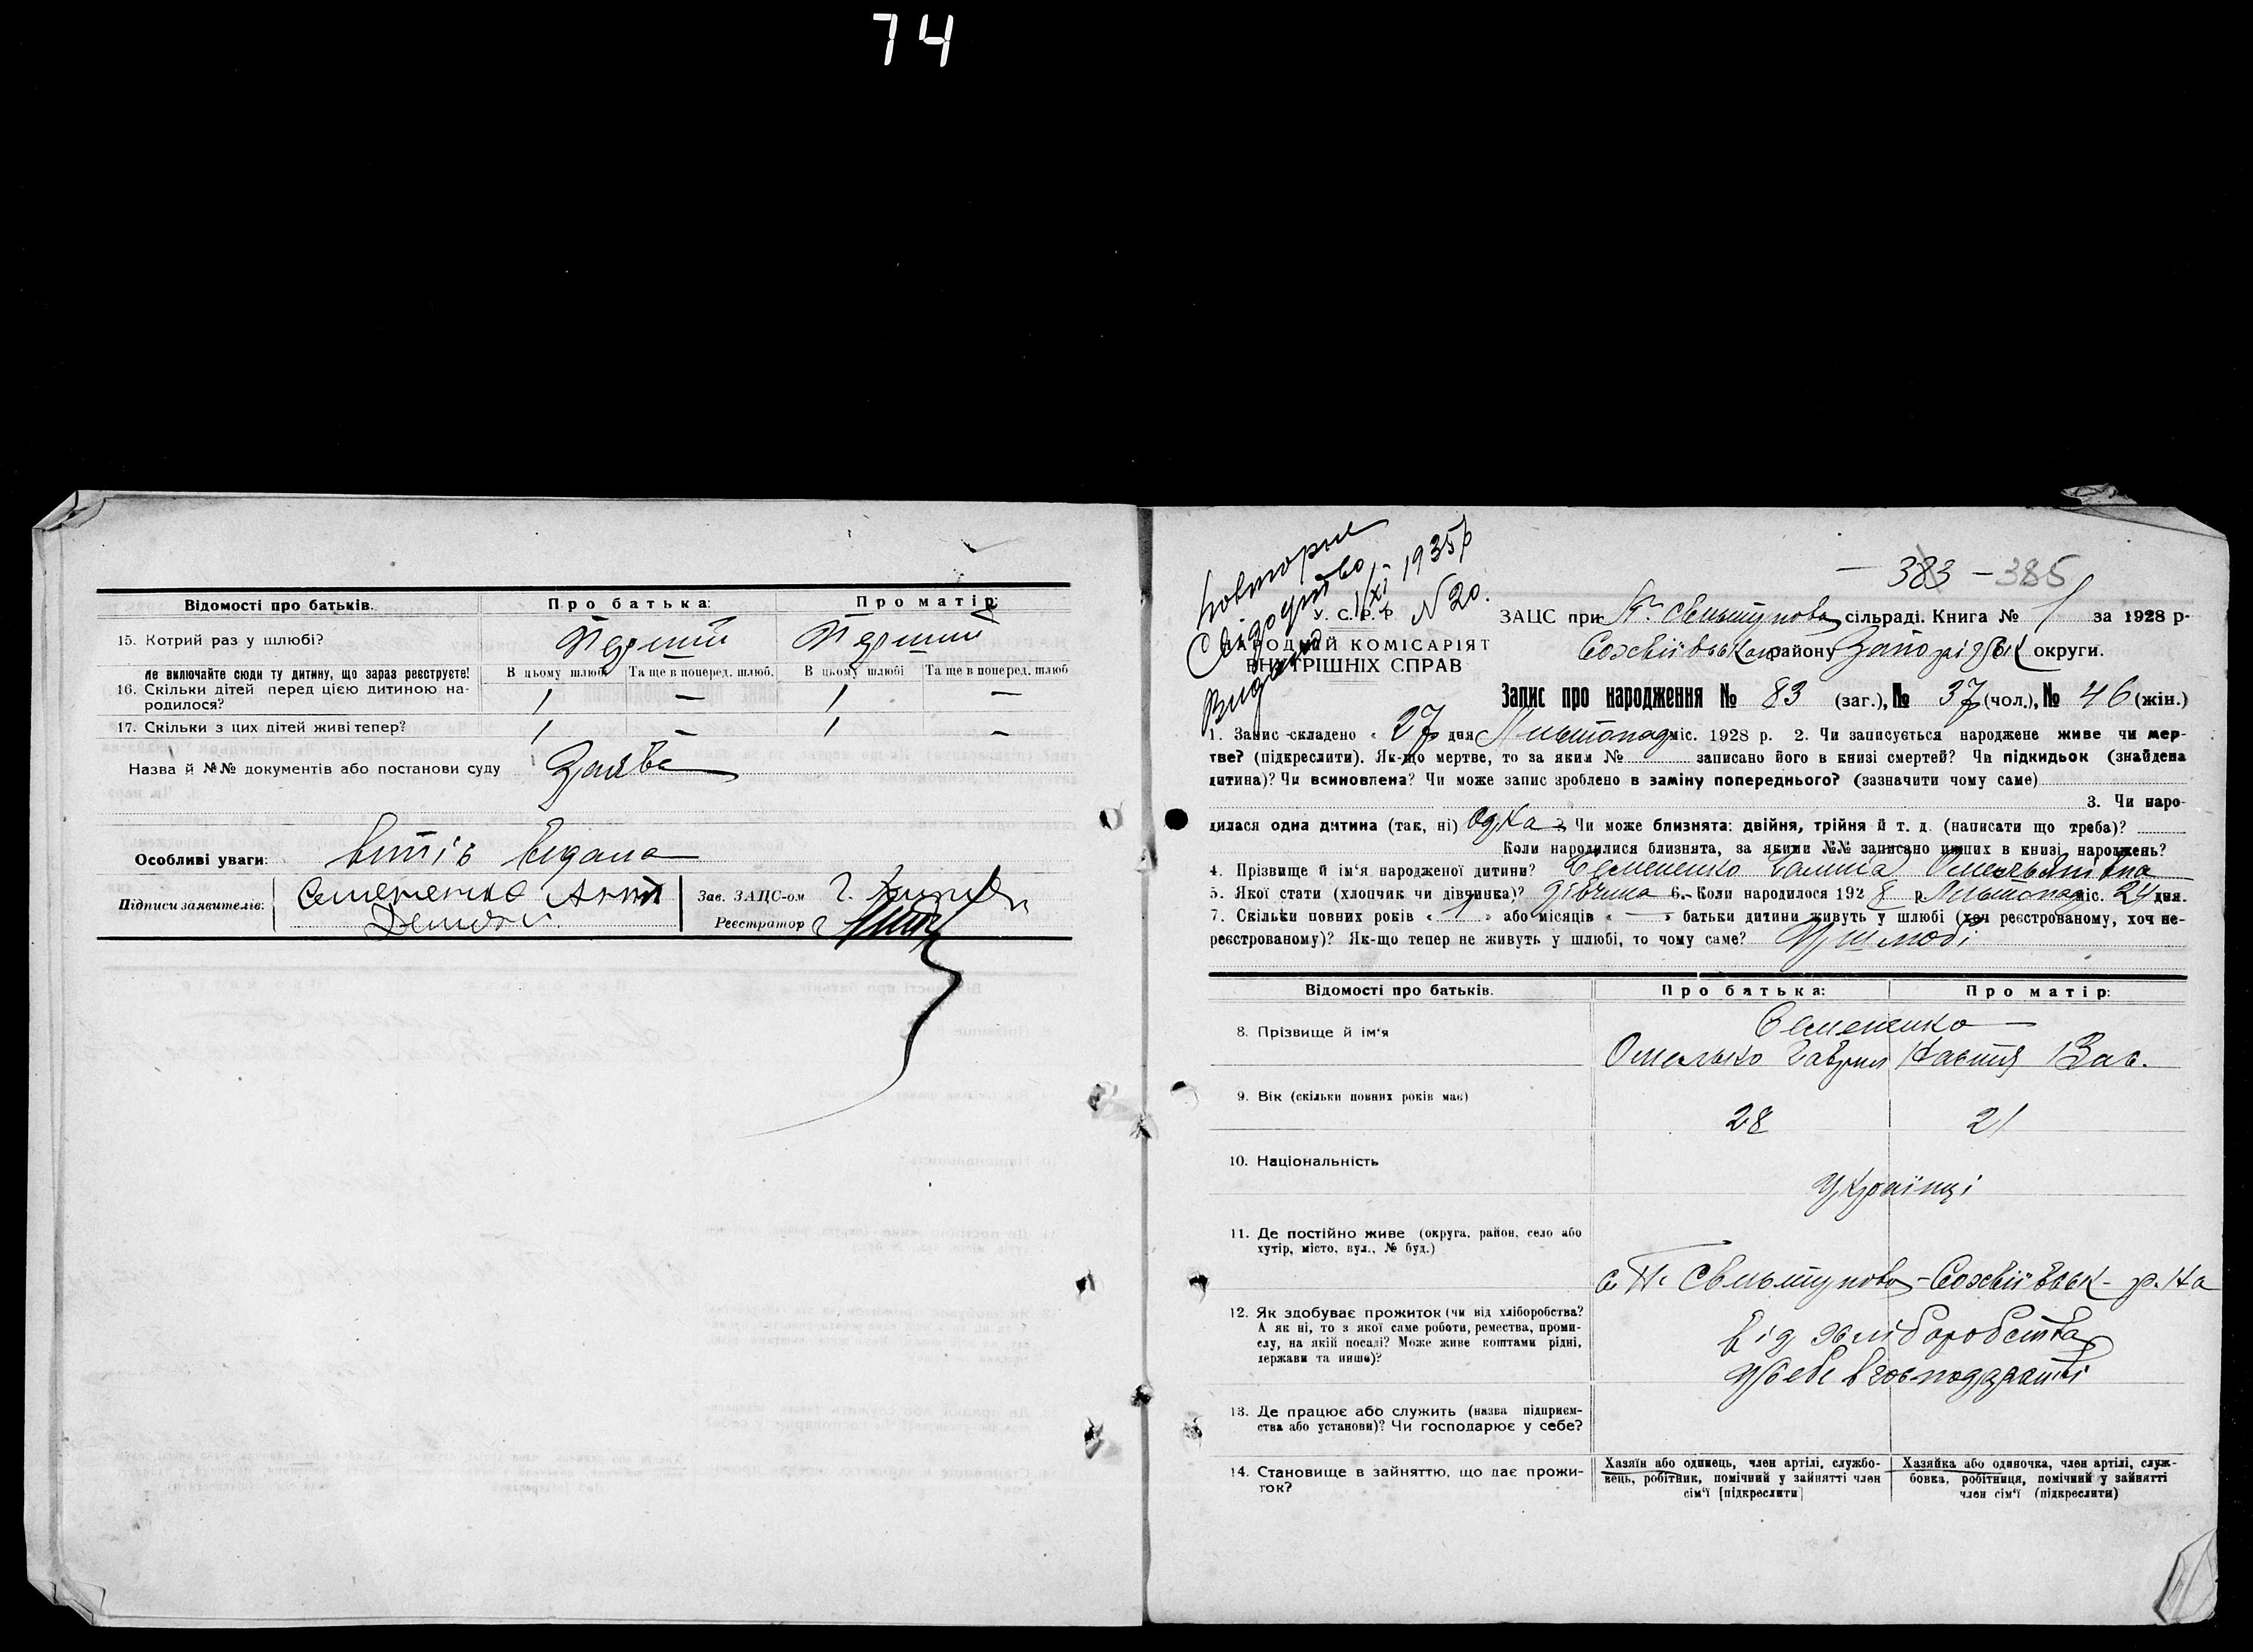 74
Відомості про батьків.
Про батька:
Про матір:
15. Котрий раз у шлюбі?
Перший
Перший
Не включайте сюди ту дитину, що зараз реєструєте!
В цьому шлюбі
Та ще в поперед. шлюб.
В цьому шлюбі
Та ще в поперед. шлюб
16. Скільки дітей перед цією дитиною на-
родилося?
1 — 1 —
17. Скільки з цих дітей живі тепер?
1 — 1 —
Назва й №№ документів або постанови суду
Заява
Особливі уваги:
Витів видана
Підписи заявителів:
Семененко
Зав. ЗАЦС-ом
Реєстратор
Повторне
Свідоцтво
Видано
1/XI - 1935 р
N 20.
383 - 385
У. С. Р. Р
НАРОДНІЙ КОМІСАРІЯТ
ВНУТРІШНІХ СПРАВ
ЗАЦС при сільраді. Книга № 1 за 1928 р-
району Запорізьк округи.
Запис про народження № 83 (заг.), № 37 (чол.), № 46 (жін.)
1. Запис складено « 27 дня Листопад міс. 1928 р. 2. Чи записується народжене живе чи мер-
тве? (підкреслити). Як-що мертве, то за яким № записано його в книзі смертей? Чи підкидьок (знайдена
дитина)? Чи всиновлена? Чи може запис зроблено в заміну попереднього? (зазначити чому саме)
3. Чи наро-
дилася одна дитина (так, ні) Одна Чи може близнята: двійня, трійня й т. д. (написати що треба)?
Коли народилися близнята, за якими №№ записано инших в книзі народжень?
4. Прізвище й ім'я народженої дитини? Семененко Галина Омельянівна
5. Якої стати (хлопчик чи дівчинка)? Дівчина 6. Коли народилося 192 8 р Листопад міс. 24 дня.
7. Скільки повних років « » або місяців « — » батьки дитини живуть у шлюбі (хоч реєстрованому, хоч не-
реєстрованому)? Як-що тепер не живуть у шлюбі, то чому саме? У шлюбі
Відомості про батьків.
Про батька:
Про матір:
8. Прізвище й ім'я
Семененко
Омелько Гаврил
Настя
9. Вік (скільки повних років має)
28
21
10. Національність
Українці
11. Де постійно живе (округа, район, село або
хутір, місто, вул., № буд.)
р.на
12. Як здобуває прожиток (чи від хліборобства?
А як ні, то з якої саме роботи, ремества, проми-
слу, на якій посаді? Може живе коштами рідні,
держави та инше)?
від хліборобства
у себе в господарстві
13. Де працює або служить (назва підприєм-
ства або установи)? Чи господарює у себе?
14. Становище в зайняттю, що дає прожи-
ток?
Хазяїн або одинець, член артілі, службо-
вець, робітник, помічний у зайнятті член
сім'ї [підкреслити]
Хазяйка або одиночка, член артілі, служ-
бовка, робітниця, помічний у зайнятті
член сім'ї (підкреслити)